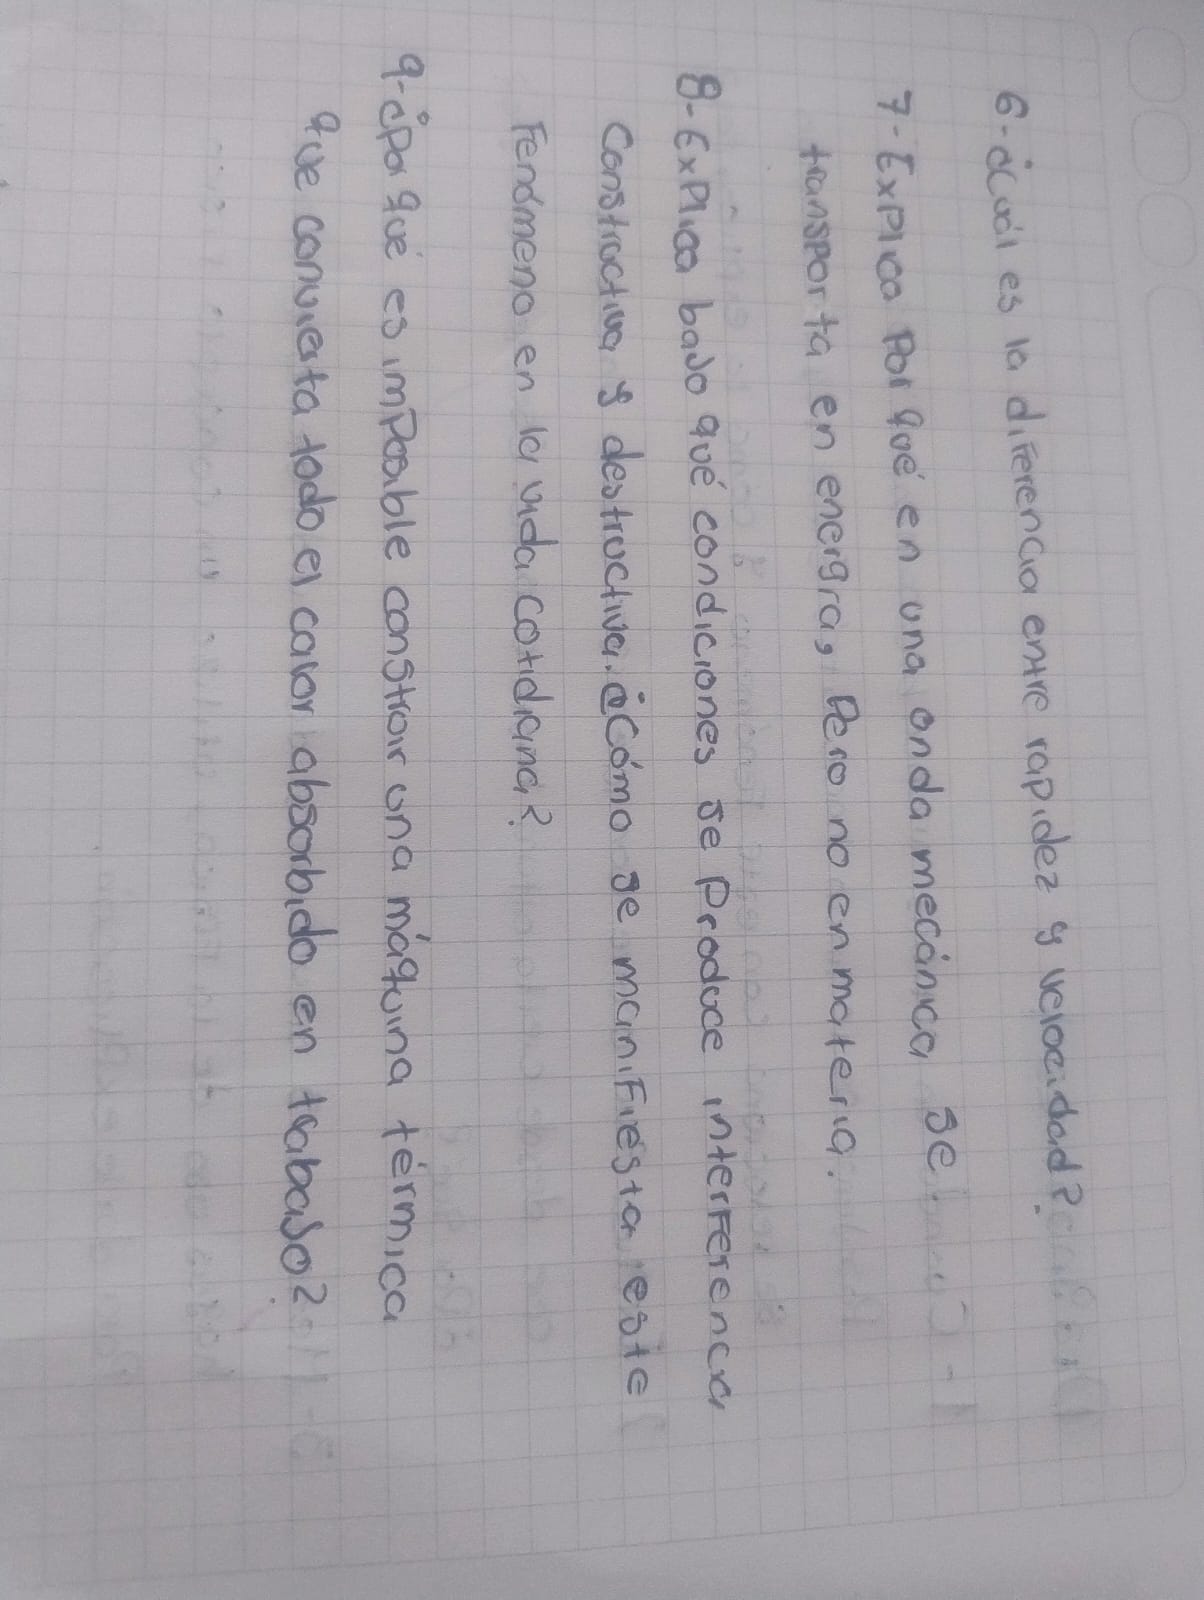 6- ¿Cuál es la diferencia entre rapidez y velocidad?
7- Explica por qué en una onda mecánica se
transporta en energía, pero no en materia.
8- Explica bajo qué condiciones se produce interferencia
constructiva y destructiva. ¿Cómo se manifiesta este
Fenómeno en la vida cotidiana?
9- ¿por qué es imposible construir una máquina térmica
que convierta todo el calor absorbido en trabajo?